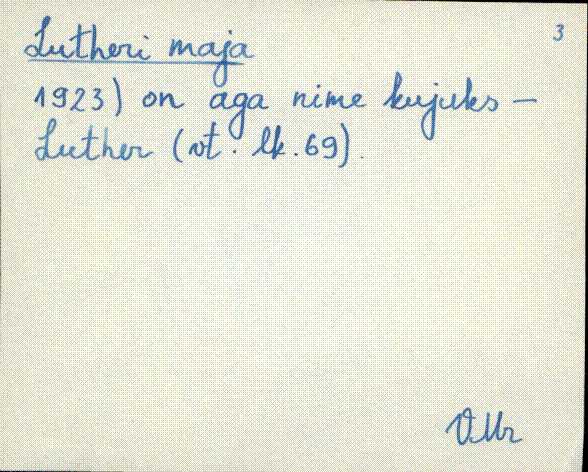 3
Lutheri maja
1923) on aga nime kujuks —
Luther (vt. lk. 69).
VMr